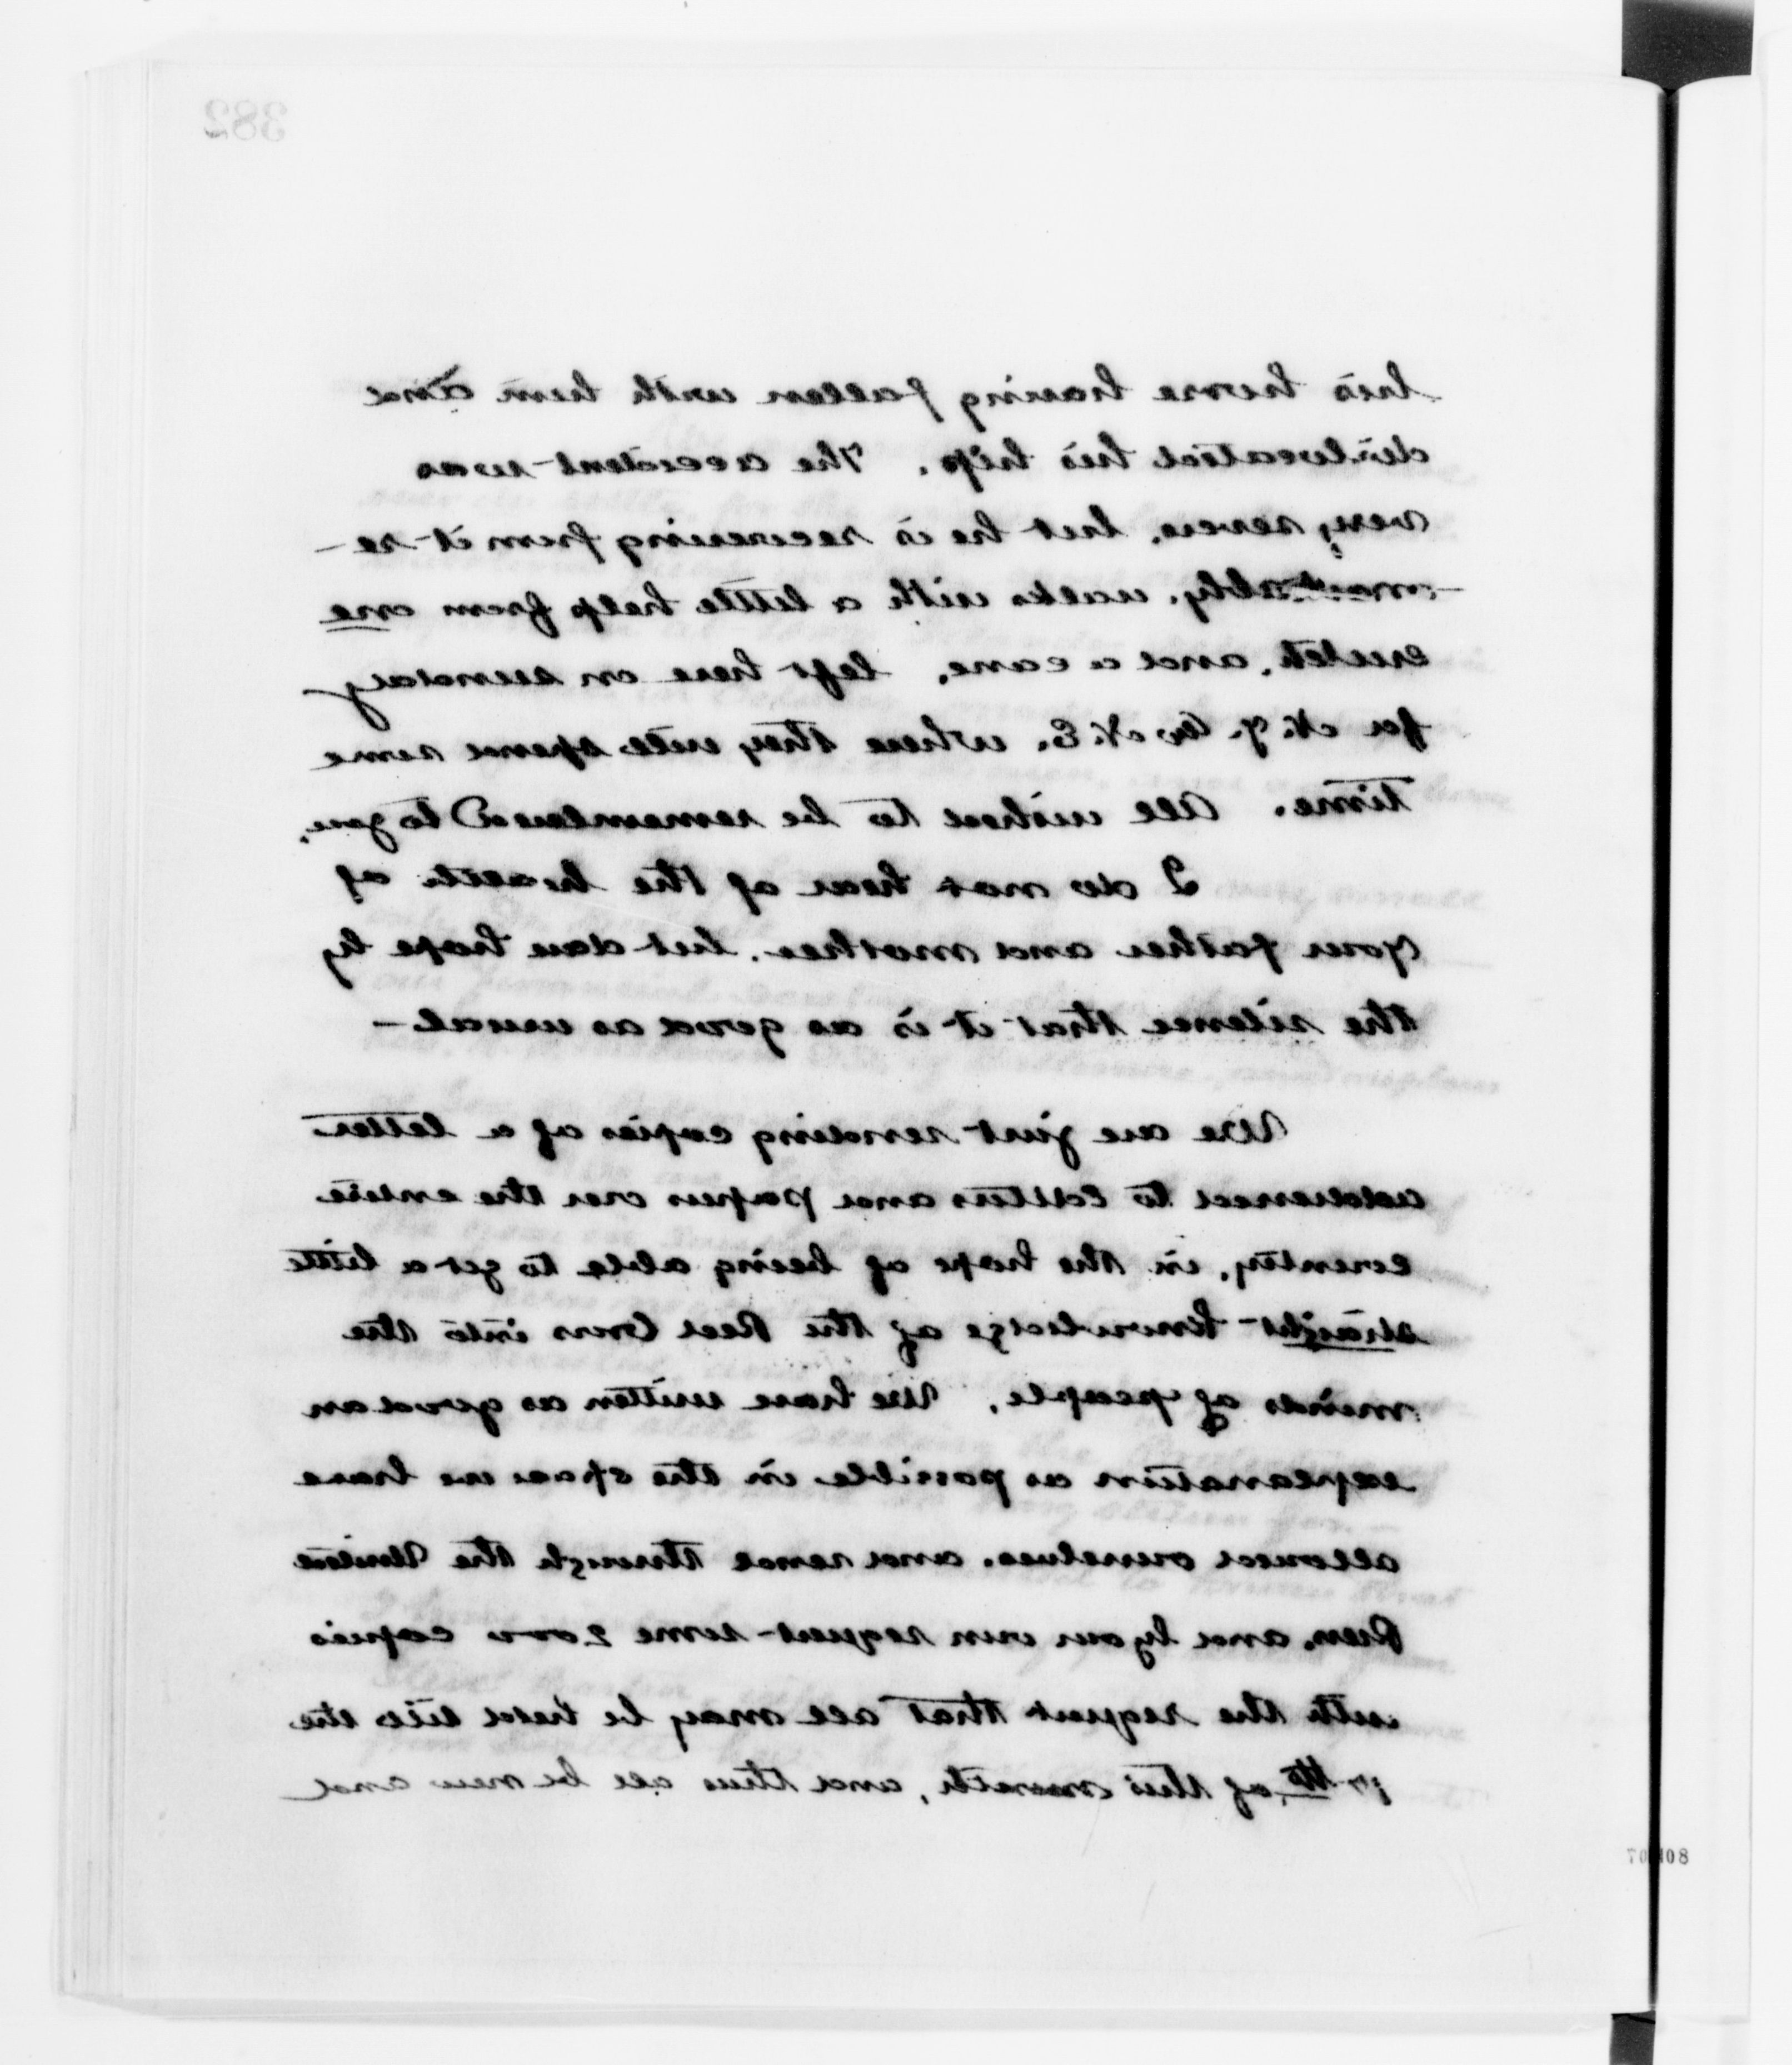 382
his horse having fallen with him and
dislocated his hip. The accident was
very severe, but he is recovering from it re-
markably, walks with a little help from one
crutch, and a cane. left here on sunday
for N.Y. & N.E. where they will spend some
time. All wished to be remembered to you.
I do not hear of the health of
your father and mother, but dare hope by
the silence that it is as good as usual-
We are just sending copies of a letter
addressed to Editors and papers over the entire
country, in the hope of being able to get a little
straight knowledge of the Red Cross into the
minds of people. We have written as good an
explanation as possible in the space we have
allowed ourselves, and send through the United
Press, and by our own request some 2000 copies
with the request that all may be held till the
of this month, and thus all be new and
70408